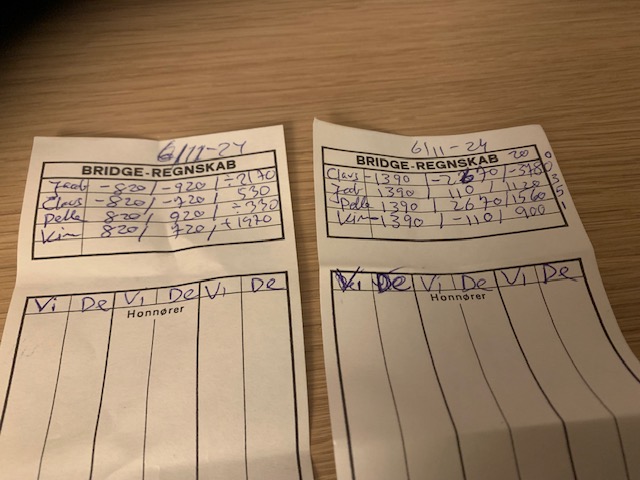 6/11-24
BRIDGE-REGNSKAB
-820 / -920 / ÷2170
Claus -820 / -720 / 530
Pelle 820 / 920 / ÷330
Kim 820 / 720 / +1970
Vi De Vi De Vi De
Honnører
6/11-24
BRIDGE-REGNSKAB 20 0
Claus -1390
1390 / 110 / 1120 3
Pelle 1390 / 2670 / 1560 5
Kim -1390 / -110 / 900 1
Vi De Vi De Vi De
Honnører